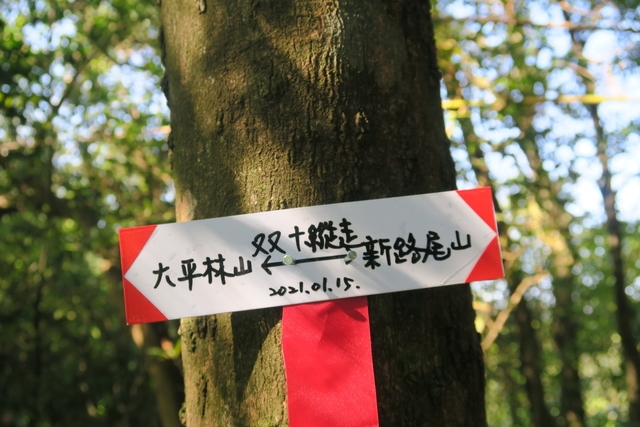 双十縱走
大平林山 ←→ 新路尾山
2021.01.15.